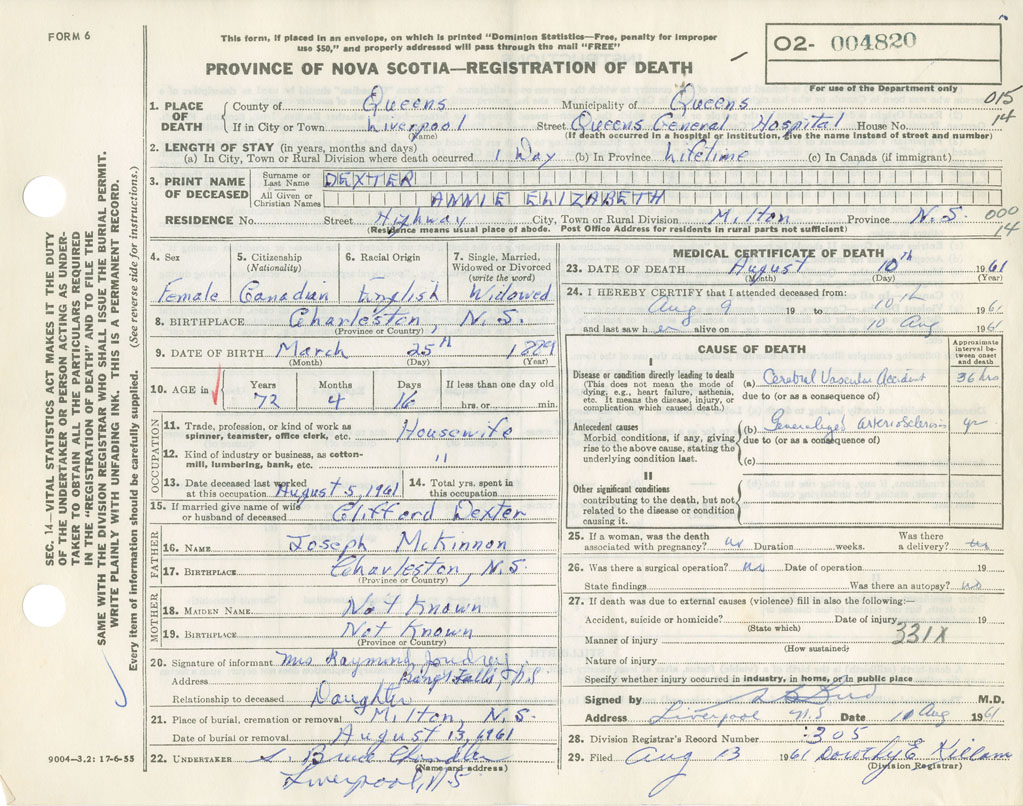 FORM 6
This form, if placed in an envelope, on which is printed "Dominion Statistics—Free, penalty for improper
use $50," and properly addressed will pass through the mail "FREE"
PROVINCE OF NOVA SCOTIA—REGISTRATION OF DEATH
02- 004820
For use of the Department only
015
14
1. PLACE OF DEATH
County of Queens Municipality of Queens
If in City or Town Liverpool Street Queens General Hospital House No.
(Name) (If death occurred in a hospital or institution, give the name instead of street and number)
2. LENGTH OF STAY (in years, months and days)
(a) In City, Town or Rural Division where death occurred 1 Day (b) In Province Lifetime (c) In Canada (if immigrant)
3. PRINT NAME OF DECEASED
Surname or Last Name DEXTER
All Given or Christian Names ANNIE ELIZABETH
RESIDENCE No. Street Highway City, Town or Rural Division Milton Province N.S.
000
14
(Residence means usual place of abode. Post Office Address for residents in rural parts not sufficient)
4. Sex 5. Citizenship (Nationality) 6. Racial Origin 7. Single, Married, Widowed or Divorced (write the word)
Female Canadian English Widowed
8. BIRTHPLACE Charleston, N.S.
(Province or Country)
9. DATE OF BIRTH March 25th 1889
(Month) (Day) (Year)
10. AGE in Years Months Days If less than one day old
72 4 16 hrs. or min.
OCCUPATION
11. Trade, profession, or kind of work as spinner, teamster, office clerk, etc. Housewife
12. Kind of industry or business, as cotton-mill, lumbering, bank, etc. "
13. Date deceased last worked at this occupation August 5, 1961 14. Total yrs. spent in this occupation
15. If married give name of wife or husband of deceased Clifford Dexter
FATHER
16. NAME Joseph McKinnon
17. BIRTHPLACE Charleston, N.S.
(Province or Country)
MOTHER
18. MAIDEN NAME Not Known
19. BIRTHPLACE Not Known
(Province or Country)
20. Signature of informant Mrs Raymond Joudrey
Address Bangs Falls, N.S.
Relationship to deceased Daughter
21. Place of burial, cremation or removal Milton, N.S.
Date of burial or removal August 13, 1961
22. UNDERTAKER S. Bruce Chandler
(Name and address)
Liverpool, N.S
MEDICAL CERTIFICATE OF DEATH
23. DATE OF DEATH August 10th 1961
(Month) (Day) (Year)
24. I HEREBY CERTIFY that I attended deceased from:
Aug 9 19 to 10th 1961
and last saw her alive on 10 Aug 1961
CAUSE OF DEATH
Approximate interval between onset and death
I
Disease or condition directly leading to death (a) Cerebral Vascular Accident 36 hrs
(This does not mean the mode of dying, e.g., heart failure, asthenia, etc. It means the disease, injury, or complication which caused death.)
due to (or as a consequence of)
Antecedent causes (b) Generalized arteriosclerosis yr
Morbid conditions, if any, giving rise to the above cause, stating the underlying condition last.
due to (or as a consequence of)
(c)
II
Other significant conditions
contributing to the death, but not related to the disease or condition causing it.
25. If a woman, was the death associated with pregnancy? no Duration weeks. Was there a delivery? no
26. Was there a surgical operation? no Date of operation 19
State findings Was there an autopsy? no
27. If death was due to external causes (violence) fill in also the following:—
Accident, suicide or homicide? Date of injury 19
(State which)
331X
Manner of injury
(How sustained)
Nature of injury
Specify whether injury occurred in industry, in home, or in public place
Signed by M.D.
Address Liverpool N.S Date 10 Aug 1961
28. Division Registrar's Record Number 305
29. Filed Aug 13 1961 Dorothy E Killam
(Division Registrar)
SEC. 14—VITAL STATISTICS ACT MAKES IT THE DUTY
OF THE UNDERTAKER OR PERSON ACTING AS UNDER-
TAKER TO OBTAIN ALL THE PARTICULARS REQUIRED
IN THE "REGISTRATION OF DEATH" AND TO FILE THE
SAME WITH THE DIVISION REGISTRAR WHO SHALL ISSUE THE BURIAL PERMIT.
WRITE PLAINLY WITH UNFADING INK. THIS IS A PERMANENT RECORD.
Every item of information should be carefully supplied. (See reverse side for instructions.)
9004—3.2: 17-6-55